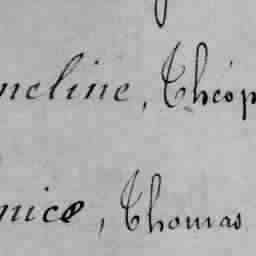 neline, Théop
nice, Thomas